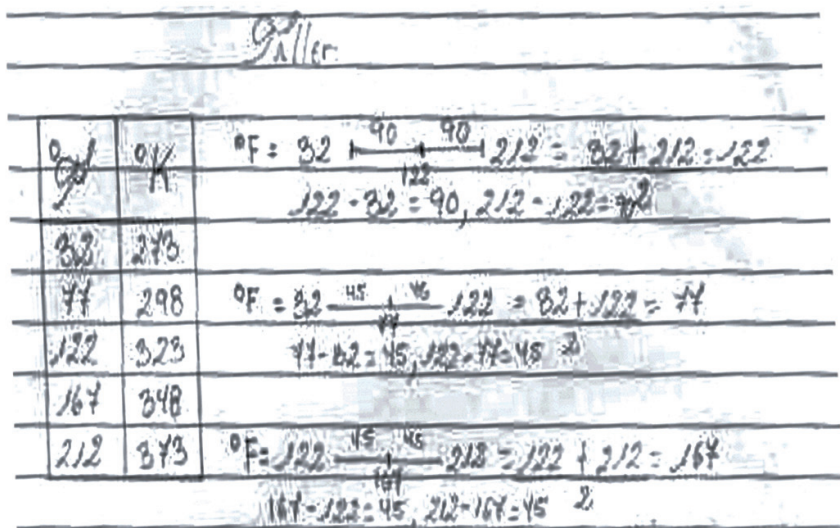 °F °K
32 273
77 298
122 323
167 348
212 373
°F = 32 90 90 212 = 32 + 212 = 122
122 2
122 - 32 = 90, 212 - 122 = 90
°F = 32 45 45 122 = 32 + 122 = 77
77 2
77 - 32 = 45, 122 - 77 = 45
°F = 122 45 45 212 = 122 + 212 = 167
167 2
167 - 122 = 45, 212 - 167 = 45